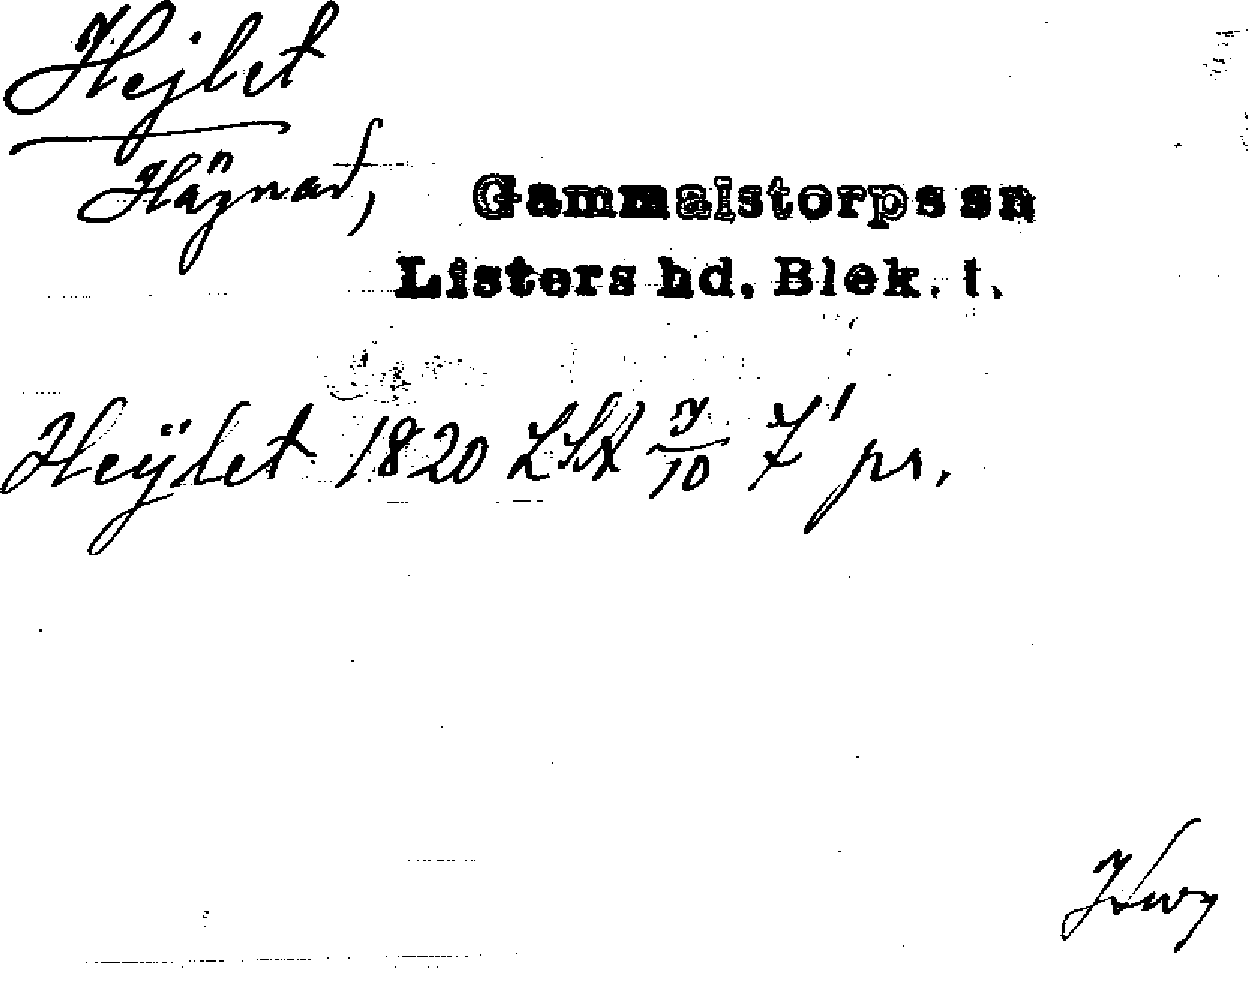 Hejlet
Hägnad, Gammalstorps sn
Listers hd. Blek. l.
Heÿlet 1820 LSA 7/10 7' pr.